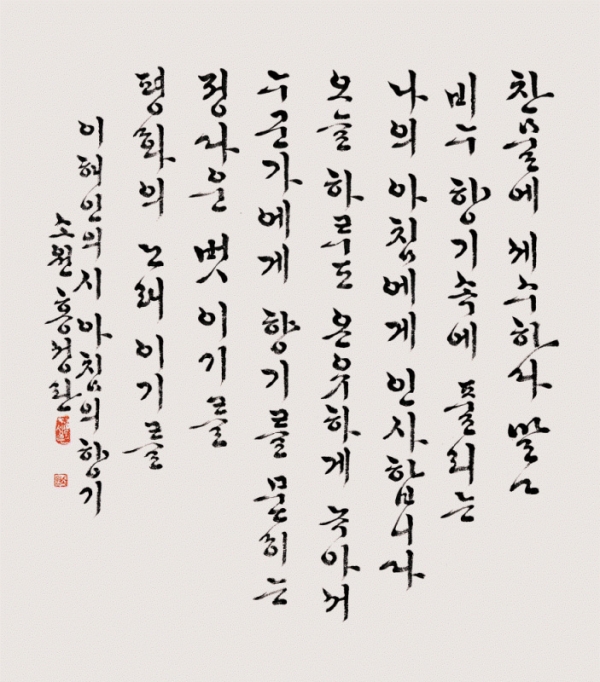 찬물에 세수하사 말근
비누 향기속에 풀리는
나의 아침에게 인사합니다
오늘 하루도 온유하게 녹아서
누군가에게 향기를 묻히는
정다운 벗이기를
평화의 노래이기를
이해인의 시 아침의 향기
소원 홍정란